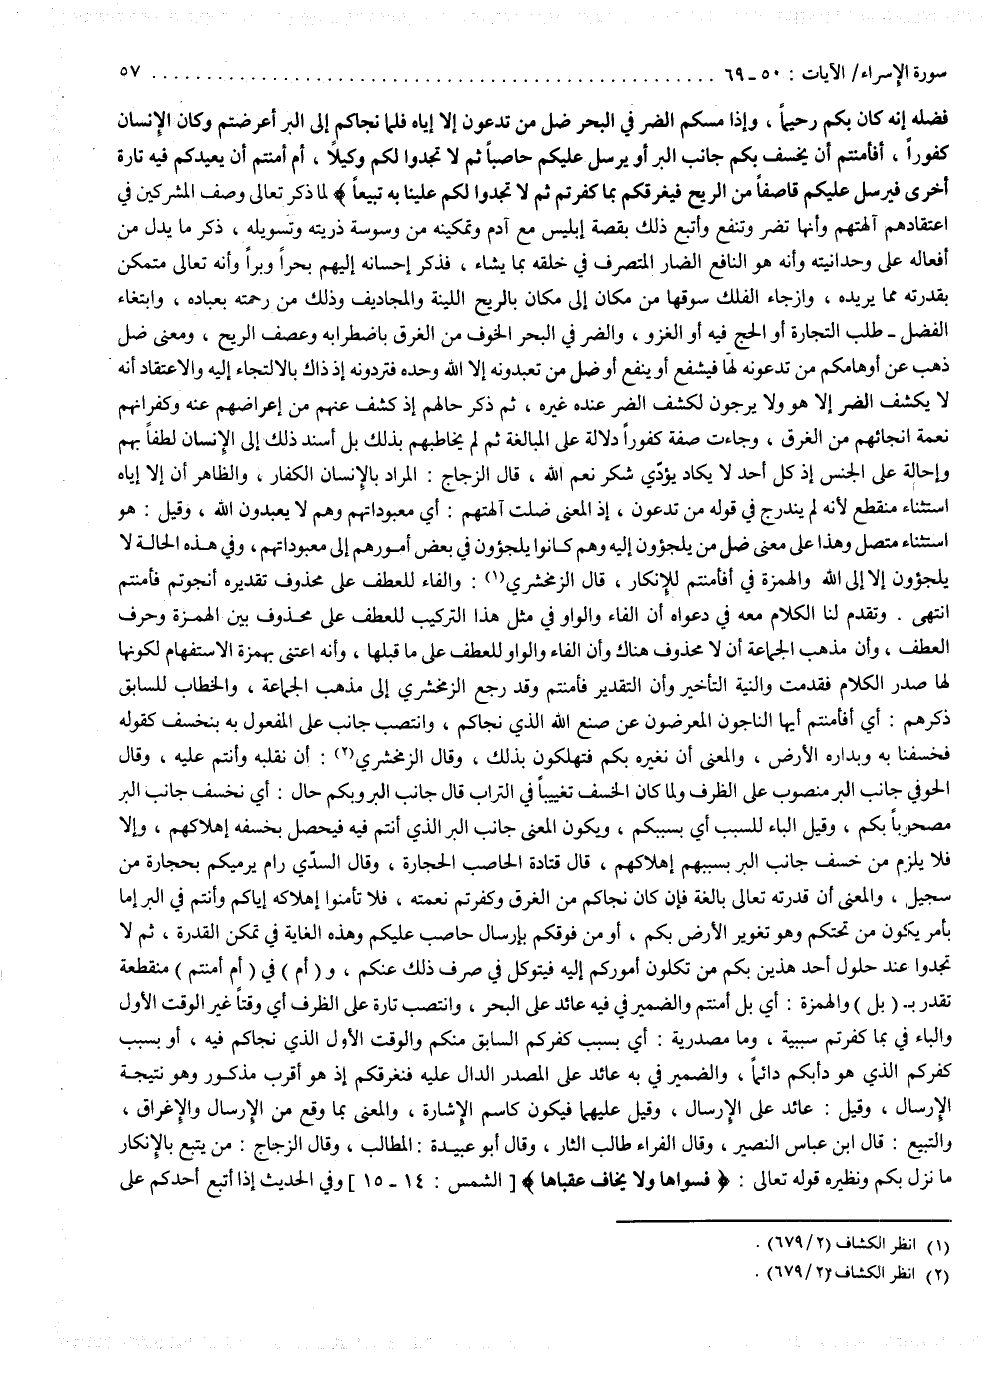 سورة الإسراء/ الآيات : ٥٠ ـ ٦٩ ............................................................ ٥٧
فضله إنه كان بكم رحيماً ، وإذا مسكم الضر في البحر ضل من تدعون إلا إياه فلما نجاكم إلى البر أعرضتم وكان الإنسان
كفوراً ، أفأمنتم أن يخسف بكم جانب البر أو يرسل عليكم حاصباً ثم لا تجدوا لكم وكيلاً ، أم أمنتم أن يعيدكم فيه تارة
أخرى فيرسل عليكم قاصفاً من الريح فيغرقكم بما كفرتم ثم لا تجدوا لكم علينا به تبيعاً ﴾ لما ذكر تعالى وصف المشركين في
اعتقادهم آلهتهم وأنها تضر وتنفع وأتبع ذلك بقصة إبليس مع آدم وتمكينه من وسوسة ذريته وتسويله ، ذكر ما يدل من
أفعاله على وحدانيته وأنه هو النافع الضار المتصرف في خلقه بما يشاء ، فذكر إحسانه إليهم بحراً وبراً وأنه تعالى متمكن
بقدرته مما يريده ، وازجاء الفلك سوقها من مكان إلى مكان بالريح اللينة والمجاديف وذلك من رحمته بعباده ، وابتغاء
الفضل ـ طلب التجارة أو الحج فيه أو الغزو ، والضر في البحر الخوف من الغرق باضطرابه وعصف الريح ، ومعنى ضل
ذهب عن أوهامكم من تدعونه لهاً فيشفع أو ينفع أو ضل من تعبدونه إلا الله وحده فتردونه إذ ذاك بالالتجاء إليه والاعتقاد أنه
لا يكشف الضر إلا هو ولا يرجون لكشف الضر عنده غيره ، ثم ذكر حالهم إذ كشف عنهم من إعراضهم عنه وكفرانهم
نعمة انجائهم من الغرق ، وجاءت صفة كفوراً دلالة على المبالغة ثم لم يخاطبهم بذلك بل أسند ذلك إلى الإنسان لطفاً بهم
وإحالة على الجنس إذ كل أحد لا يكاد يؤدّي شكر نعم الله ، قال الزجاج : المراد بالإنسان الكفار ، والظاهر أن إلا إياه
استثناء منقطع لأنه لم يندرج في قوله من تدعون ، إذ المعنى ضلت آلهتهم : أي معبوداتهم وهم لا يعبدون الله ، وقيل : هو
استثناء متصل وهذا على معنى ضل من يلجؤون إليه وهم كانوا يلجؤون في بعض أمورهم إلى معبوداتهم، وفي هذه الحالة لا
يلجؤون إلا إلى الله والهمزة في أفأمنتم للإنكار ، قال الزمخشري(١) : والفاء للعطف على محذوف تقديره أنجوتم فأمنتم
انتهى . وتقدم لنا الكلام معه في دعواه أن الفاء والواو في مثل هذا التركيب للعطف على محذوف بين الهمزة وحرف
العطف ، وأن مذهب الجماعة أن لا محذوف هناك وأن الفاء والواو للعطف على ما قبلها ، وأنه اعتنى بهمزة الاستفهام لكونها
لها صدر الكلام فقدمت والنية التأخير وأن التقدير فأمنتم وقد رجع الزمخشري إلى مذهب الجماعة ، والخطاب للسابق
ذكرهم : أي أفأمنتم أيها الناجون المعرضون عن صنع الله الذي نجاكم ، وانتصب جانب على المفعول به بنخسف كقوله
فخسفنا به وبداره الأرض ، والمعنى أن نغيره بكم فتهلكون بذلك ، وقال الزمخشري(٢) : أن نقلبه وأنتم عليه ، وقال
الحوفي جانب البر منصوب على الظرف ولما كان الخسف تغييباً في التراب قال جانب البر وبكم حال : أي نخسف جانب البر
مصحوباً بكم ، وقيل الباء للسبب أي بسببكم ، ويكون المعنى جانب البر الذي أنتم فيه فيحصل بخسفه إهلاكهم ، وإلا
فلا يلزم من خسف جانب البر بسببهم إهلاكهم ، قال قتادة الحاصب الحجارة ، وقال السدّي رام يرميكم بحجارة من
سجيل ، والمعنى أن قدرته تعالى بالغة فإن كان نجاكم من الغرق وكفرتم نعمته ، فلا تأمنوا إهلاكه إياكم وأنتم في البر إما
بأمر يكون من تحتكم وهو تغوير الأرض بكم ، أو من فوقكم بإرسال حاصب عليكم وهذه الغاية في تمكن القدرة ، ثم لا
تجدوا عند حلول أحد هذين بكم من تكلون أموركم إليه فيتوكل في صرف ذلك عنكم ، و ( أم ) في ( أم أمنتم ) منقطعة
تقدر بـ ( بل ) والهمزة : أي بل أمنتم والضمير في فيه عائد على البحر ، وانتصب تارة على الظرف أي وقتاً غير الوقت الأول
والباء في بما كفرتم سببية ، وما مصدرية : أي بسبب كفركم السابق منكم والوقت الأول الذي نجاكم فيه ، أو بسبب
كفركم الذي هو دأبكم دائماً ، والضمير في به عائد على المصدر الدال عليه فنغرقكم إذ هو أقرب مذكور وهو نتيجة
الإرسال ، وقيل : عائد على الإرسال ، وقيل عليهما فيكون كاسم الإشارة ، والمعنى بما وقع من الإرسال والإغراق ،
والتبيع : قال ابن عباس النصير ، وقال الفراء طالب الثار ، وقال أبو عبيدة : المطالب ، وقال الزجاج : من يتبع بالإنكار
ما نزل بكم ونظيره قوله تعالى : ﴿ فسواها ولا يخاف عقباها ﴾ [ الشمس : ١٤ ـ ١٥ ] وفي الحديث إذا أتبع أحدكم على
(١) انظر الكشاف (٦٧٩/٢) .
(٢) انظر الكشاف (٦٧٩/٢) .